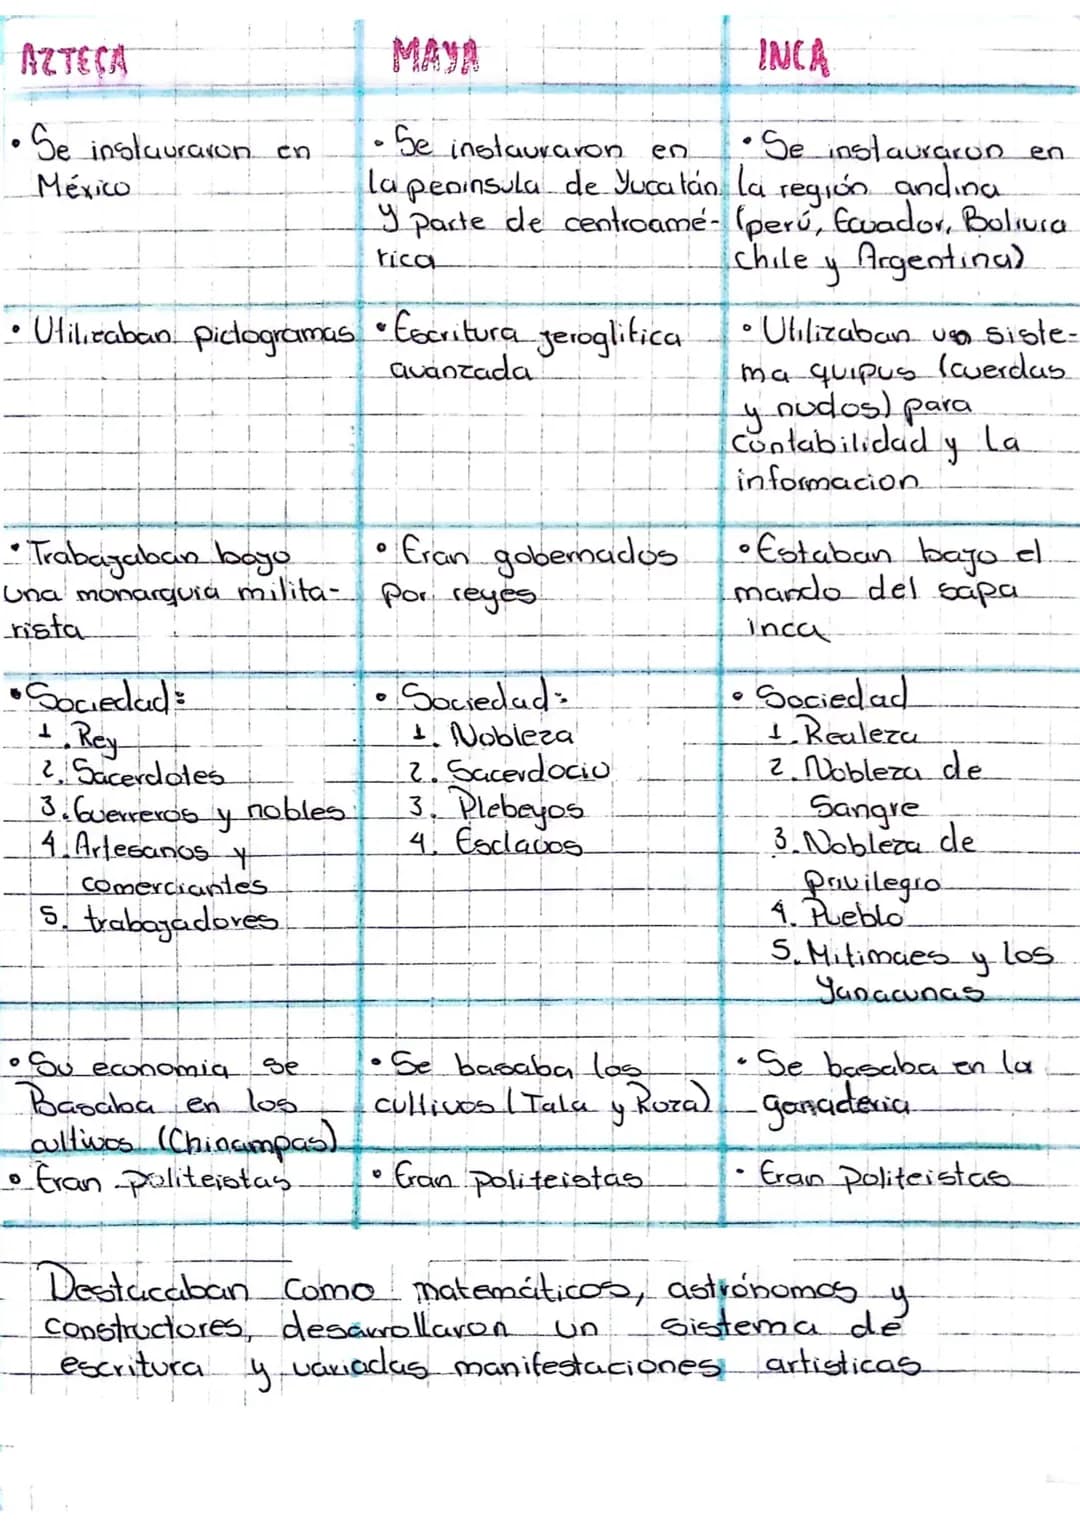 AZTECA
MAYA
INCA
• Se instauraron en
México
• Se instauraron en
la península de Yucatán
y parte de centroamé-
rica
• Se instauraron en
la región andina
(perú, Ecuador, Bolivia
chile y Argentina)
• Utilizaban pictogramas
• Escritura jeroglifica
avanzada
• Utilizaban un siste-
ma quipus (cuerdas
y nudos) para
contabilidad y la
informacion
• Trabajaban bajo
una monarquia milita-
rista
• Eran gobernados
por reyes
• Estaban bajo el
mando del sapa
inca
• Sociedad:
1. Rey
2. Sacerdotes
3. Guerreros y nobles
4. Artesanos y
comerciantes
5. trabajadores
• Sociedad:
1. Nobleza
2. Sacerdocio
3. Plebeyos
4. Esclavos
• Sociedad
1. Realeza
2. Nobleza de
Sangre
3. Nobleza de
privilegio
4. Pueblo
5. Mitimaes y los
Yanacunas
• Su economia se
Basaba en los
cultivos (Chinampas)
• Se basaba los
cultivos (Tala y Roza)
• Se basaba en la
ganaderia
• Eran politeistas
• Eran politeistas
• Eran Politeistas
Destacaban Como matemáticos, astrónomos y
constructores, desarrollaron un sistema de
escritura y variadas manifestaciones artisticas